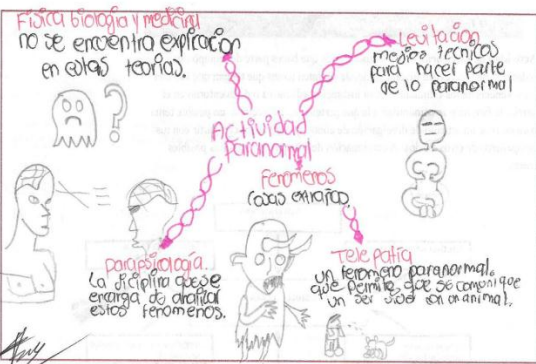 Física biología y medicina
no se encuentra explicación
en estas teorías.
Levitación
medios tecnicas
para hacer parte
de lo paranormal
?
Actividad
paranormal
Fenomenos
cosas extrañas.
parapsicología.
La diciplina que se
encarga de analizar
estos fenomenos.
Telepatia
un fenomeno paranormal.
que permite, que se comunique
un ser vivo con un animal.